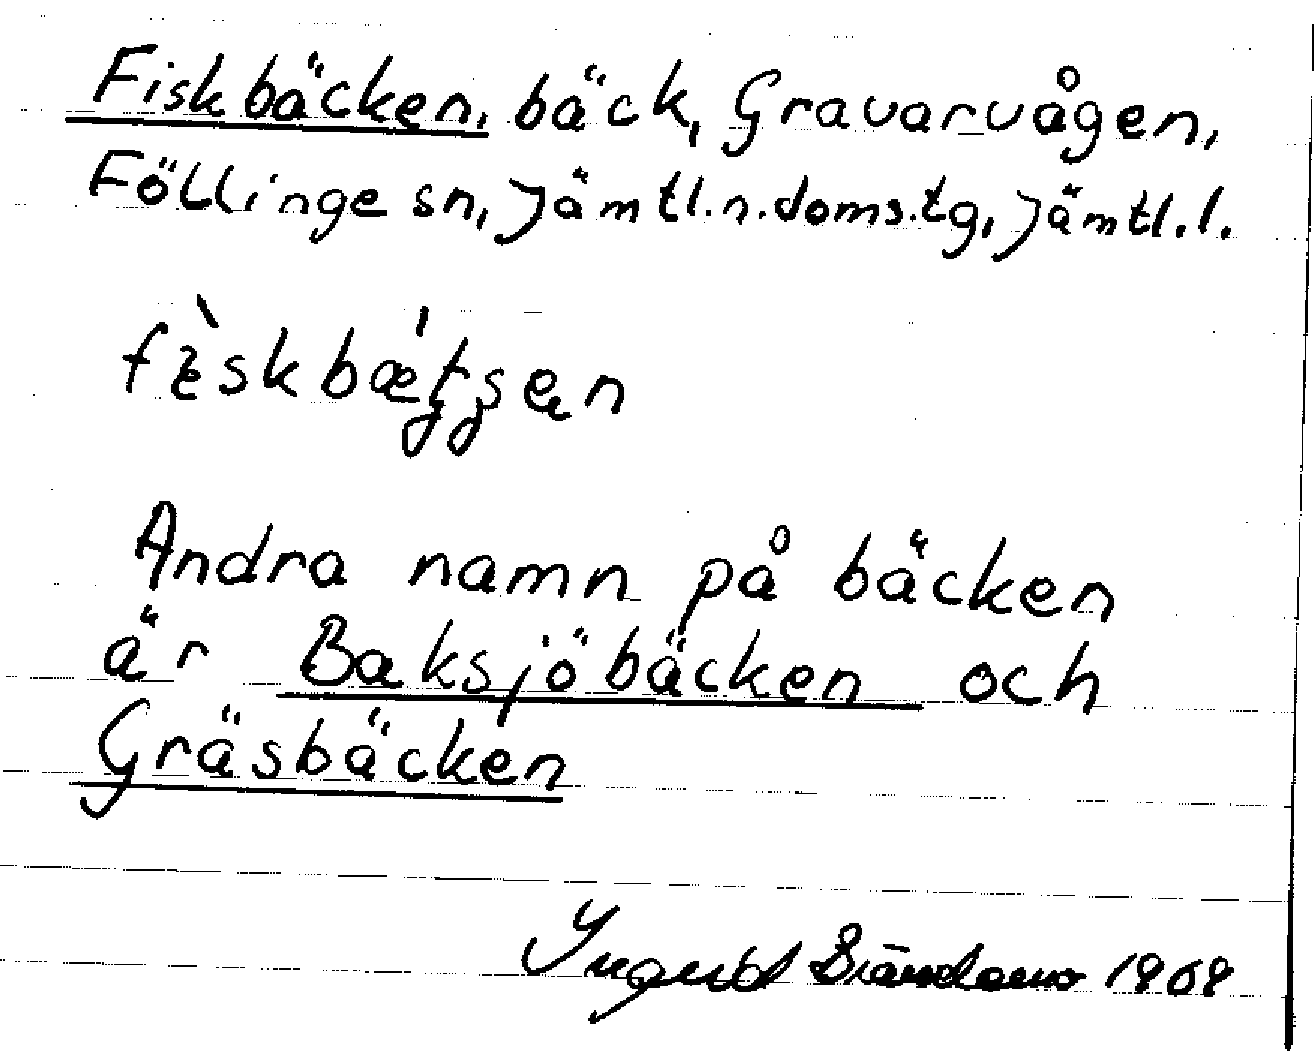 Fiskbäcken, bäck, Gravarvågen,
Föllinge sn, Jämtl.n.doms.tg, Jämtl.l.
Andra namn på bäcken
är Baksjöbäcken och
Gräsbäcken
Ingrid 1968